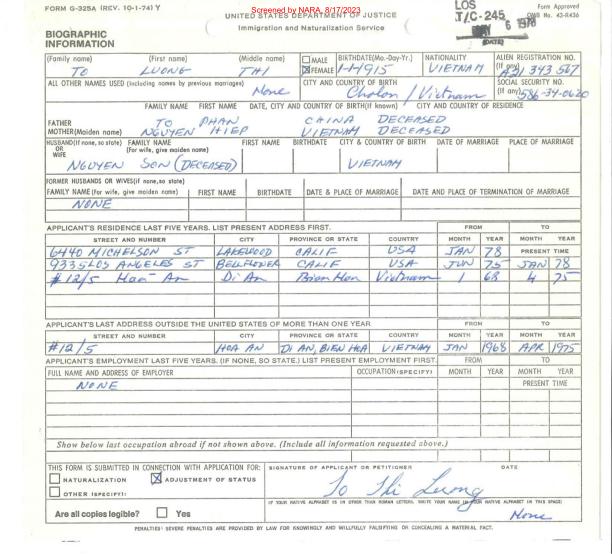 FORM G-325A (REV. 10-1-74) Y
Screened by NARA, 8/17/2023
UNITED STATES DEPARTMENT OF JUSTICE
Immigration and Naturalization Service
LOS
MAY 6 1978
(DATE)
Form Approved
OMB No. 43-R436
BIOGRAPHIC
INFORMATION
(Family name) (First name) (Middle name) MALE FEMALE BIRTHDATE(Mo.-Day-Yr.) NATIONALITY ALIEN REGISTRATION NO. (If any)
TO LUONG THI 1-1-1915 VIETNAM A21 343 567
ALL OTHER NAMES USED (Including names by previous marriages) CITY AND COUNTRY OF BIRTH SOCIAL SECURITY NO. (If any)
None Cholon / Vietnam 586-34-0620
FAMILY NAME FIRST NAME DATE, CITY AND COUNTRY OF BIRTH(If known) CITY AND COUNTRY OF RESIDENCE
FATHER TO PHAN CHINA DECEASED
MOTHER(Maiden name) NGUYEN HIEP VIETNAM DECEASED
HUSBAND(If none, so state) OR WIFE FAMILY NAME (For wife, give maiden name) FIRST NAME BIRTHDATE CITY & COUNTRY OF BIRTH DATE OF MARRIAGE PLACE OF MARRIAGE
NGUYEN SON (DECEASED) VIETNAM
FORMER HUSBANDS OR WIVES(if none, so state)
FAMILY NAME(For wife, give maiden name) FIRST NAME BIRTHDATE DATE & PLACE OF MARRIAGE DATE AND PLACE OF TERMINATION OF MARRIAGE
NONE
APPLICANT'S RESIDENCE LAST FIVE YEARS. LIST PRESENT ADDRESS FIRST. FROM TO
STREET AND NUMBER CITY PROVINCE OR STATE COUNTRY MONTH YEAR MONTH YEAR
6440 MICHELSON ST LAKEWOOD CALIF USA JAN 78 PRESENT TIME
9335 LOS ANGELES ST BELLFLOWER CALIF USA JUN 75 JAN 78
#12/5 Hoa An Di An Bien Hoa Vietnam 1 68 4 75
APPLICANT'S LAST ADDRESS OUTSIDE THE UNITED STATES OF MORE THAN ONE YEAR FROM TO
STREET AND NUMBER CITY PROVINCE OR STATE COUNTRY MONTH YEAR MONTH YEAR
#12/5 HOA AN DI AN, BIEN HOA VIETNAM JAN 1968 APR 1975
APPLICANT'S EMPLOYMENT LAST FIVE YEARS. (IF NONE, SO STATE.) LIST PRESENT EMPLOYMENT FIRST. FROM TO
FULL NAME AND ADDRESS OF EMPLOYER OCCUPATION (SPECIFY) MONTH YEAR MONTH YEAR
NONE PRESENT TIME
Show below last occupation abroad if not shown above. (Include all information requested above.)
THIS FORM IS SUBMITTED IN CONNECTION WITH APPLICATION FOR: SIGNATURE OF APPLICANT OR PETITIONER DATE
NATURALIZATION ADJUSTMENT OF STATUS
OTHER (SPECIFY):
To Thi Luong
IF YOUR NATIVE ALPHABET IS IN OTHER THAN ROMAN LETTERS, WRITE YOUR NAME IN YOUR NATIVE ALPHABET IN THIS SPACE)
Are all copies legible? Yes None
PENALTIES: SEVERE PENALTIES ARE PROVIDED BY LAW FOR KNOWINGLY AND WILLFULLY FALSIFYING OR CONCEALING A MATERIAL FACT.